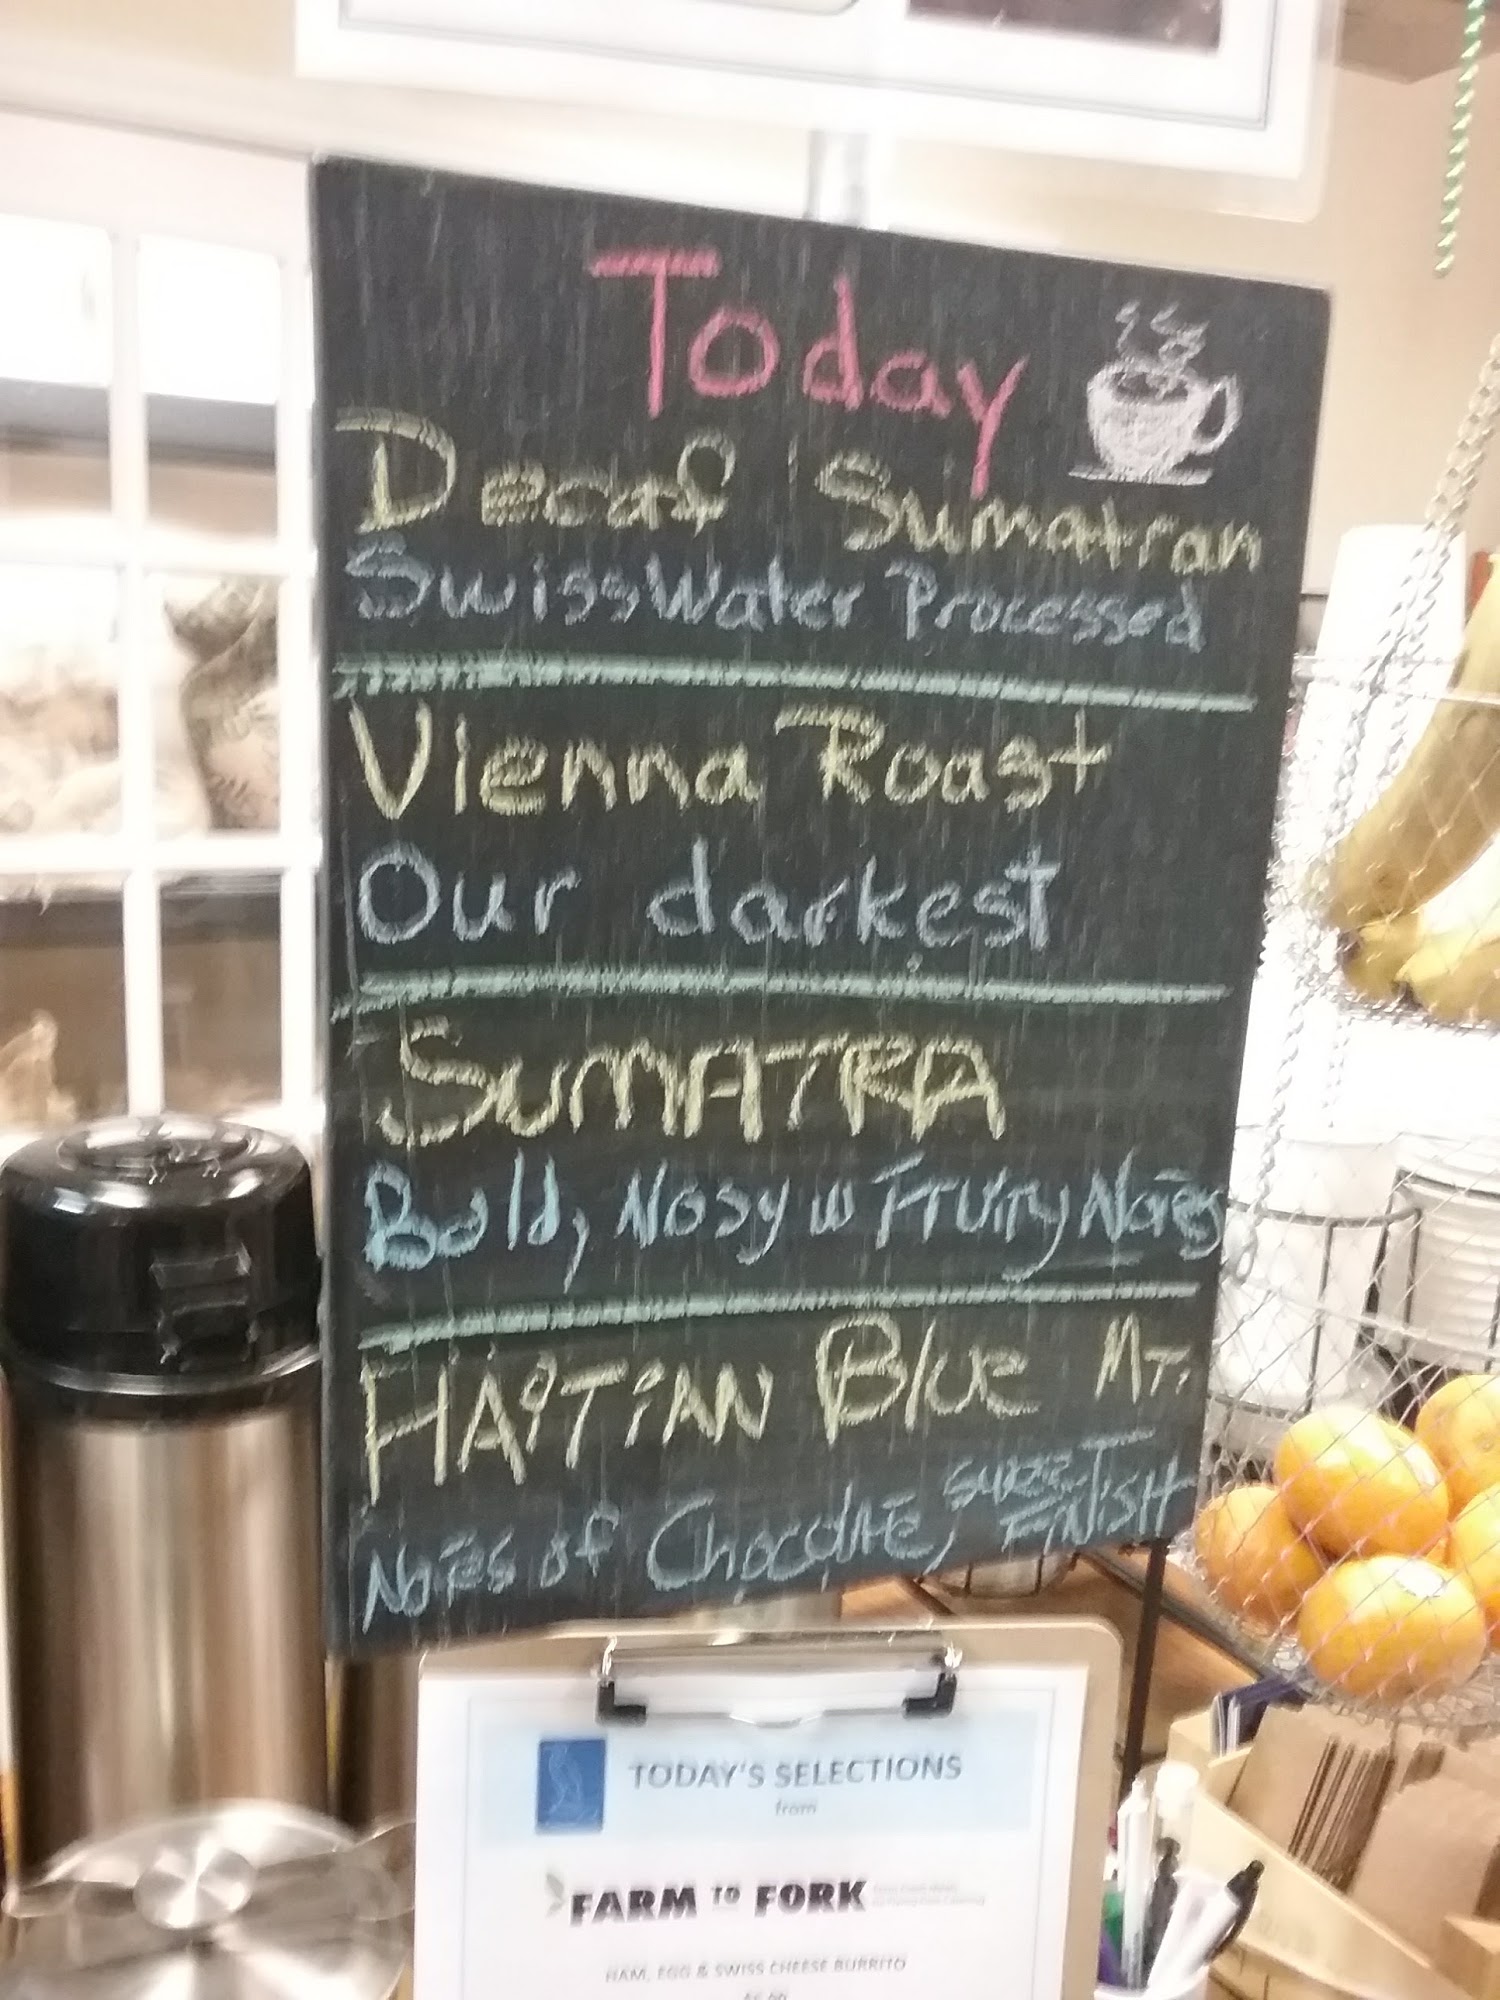 Today
Decaf Sumatran
Swiss Water Processed
Vienna Roast
Our darkest
SUMATRA
Bold, Nosy w Fruity Notes
HAiTiAN Blue MT.
Notes of Chocolate, sweet FINISH
TODAY'S SELECTIONS
from
FARM TO FORK
HAM, EGG & SWISS CHEESE BURRITO